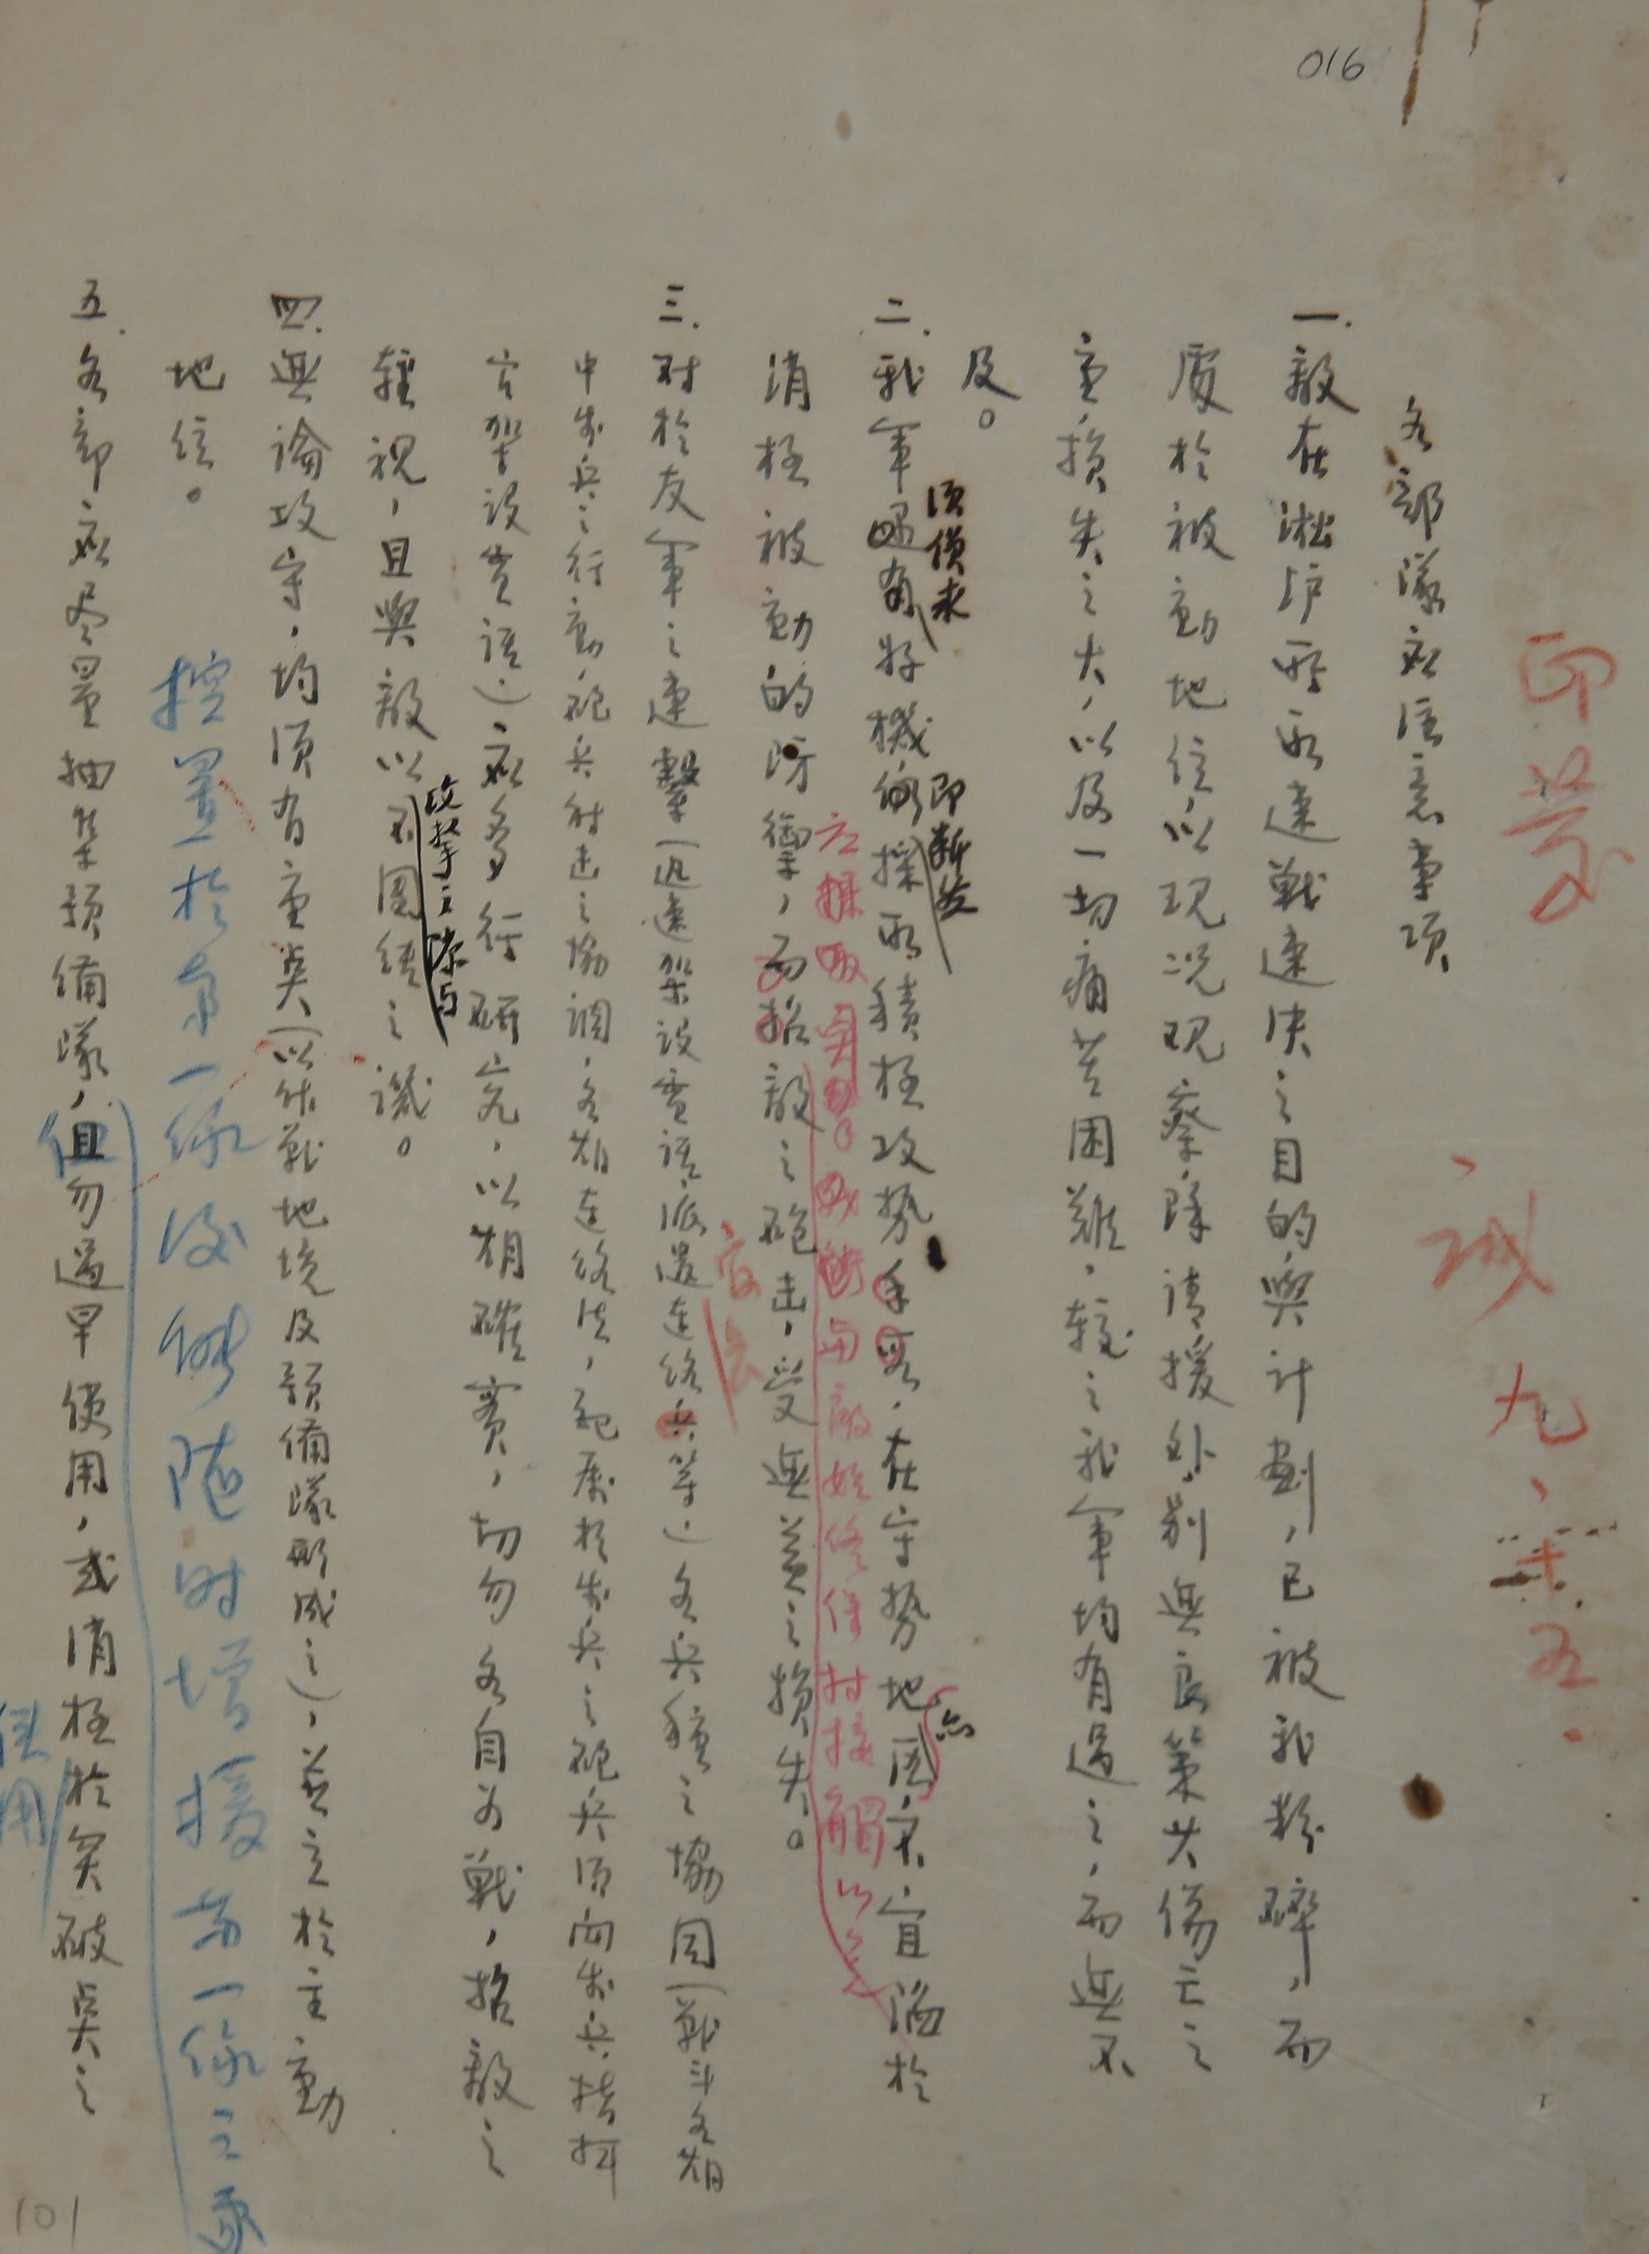 016
印發
誠 九、十五.
各部隊應注意事項
一.敵在淞沪所取速戰速決之目的,與計劃,已被我粉碎,而
處於被動地位,以現況現察,除請援外,別無良策,其傷亡之
重,損失之大,以及一切痛苦困難,較之我軍均有過之,而無不
及。
須儘求
即斷然
二.我軍遇有好機,採取積極攻勢手段,在守勢地區,不宜陷於
亦
应採取突擊或 与敵始終保持接觸以免
消極被動的防禦,而招敵之砲击,受無益之損失。
三.对於友軍之連繫(迅速架設電話,派遣連絡兵等)各兵種之協同(戰斗各期
官長
中步兵之行動,砲兵射击之協調,各期連絡法,配屬於步兵之砲兵須向步兵指揮
官架設電話)應多行研究,以期確實,切勿各自為戰,招敵之
輕視,且與敵以不團結之譏。
攻擊之隙与
四.無論攻守,均須有重點(以作戰地境及預備隊形成之),並立於主動
地位。
控置於第一線後俾随时增援第一線之
五.各部應尽量抽集預備隊,且勿過早使用,或消極於突破點之
但
使用
101